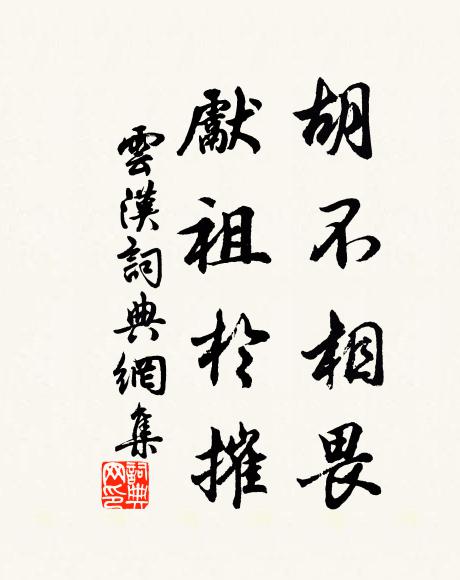 胡不相畏
獻祖於摧
雲漢詞典網集
詞典网印